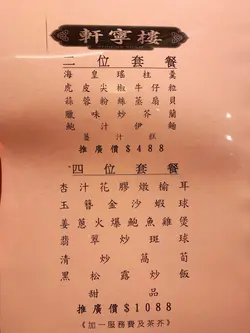 軒寧樓
二位套餐
海皇瑤柱羹
虎皮尖椒牛仔粒
蒜蓉粉絲蒸扇貝
臘味炒芥蘭
鮑汁伊麵
薑汁糕
推廣價$488
四位套餐
杏汁花膠燉榆耳
玉簪金沙蝦球
姜蔥火爆鮑魚雞煲
翡翠炒斑球
清炒萵筍
黑松露炒飯
甜品
推廣價$1088
《加一服務費及茶芥》